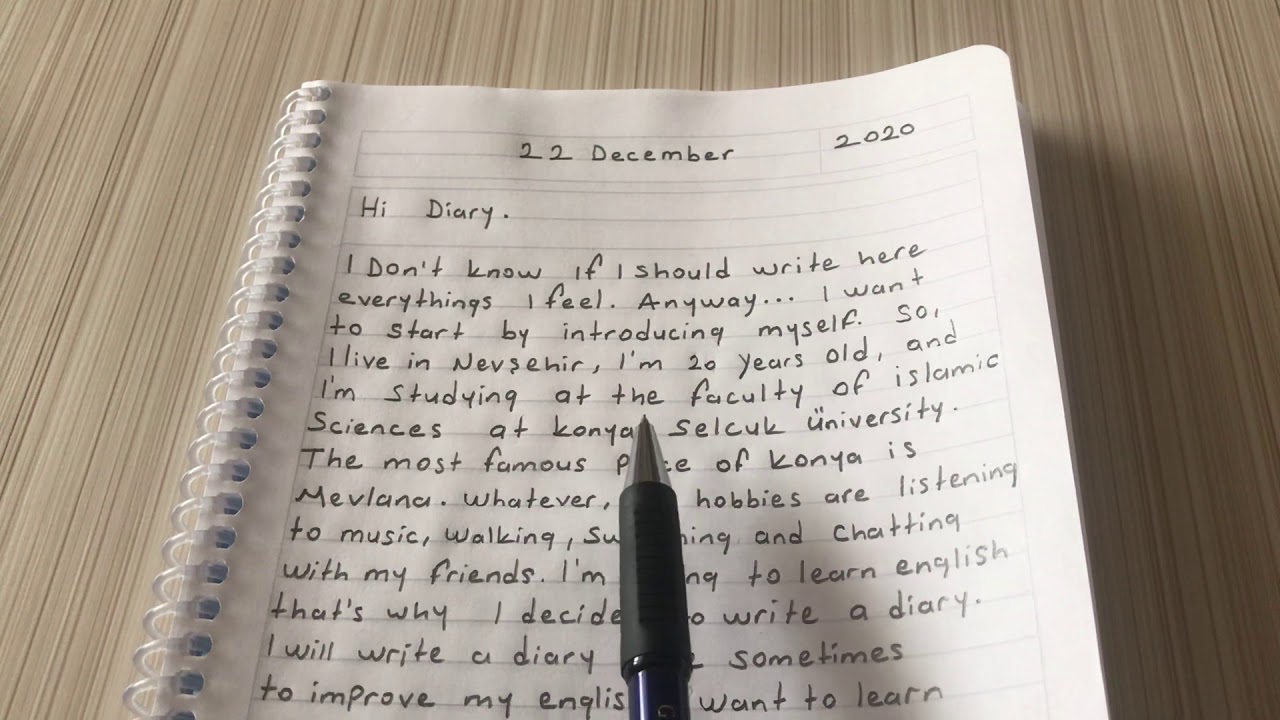 22 December 2020
Hi Diary.
I Don't know if I should write here
everythings I feel. Anyway... I want
to start by introducing myself. So,
I live in Nevşehir, I'm 20 years old, and
I'm studying at the faculty of islamic
Sciences at konya Selcuk üniversity.
The most famous of konya is
Mevlana. whatever, hobbies are listening
to music, walking, and chatting
with my friends. I'm to learn english
that's why I to write a diary.
I will write a diary sometimes
to improve my want to learn